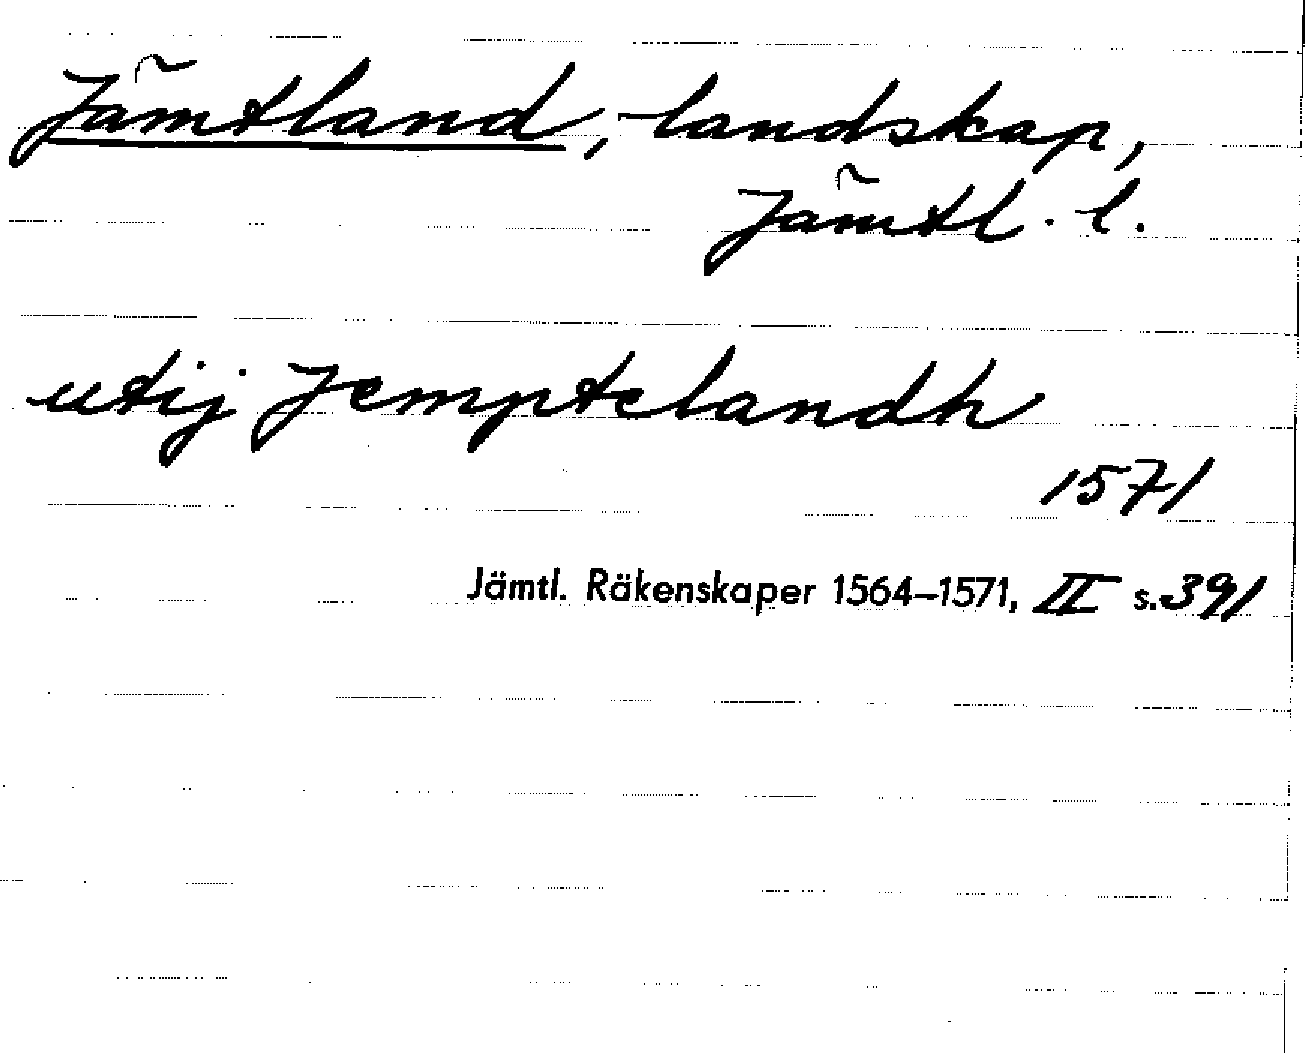 Jämtland, landskap,
Jämtl. l.
utij Jemptelandh
1571
Jämtl. Räkenskaper 1564–1571, II s. 391